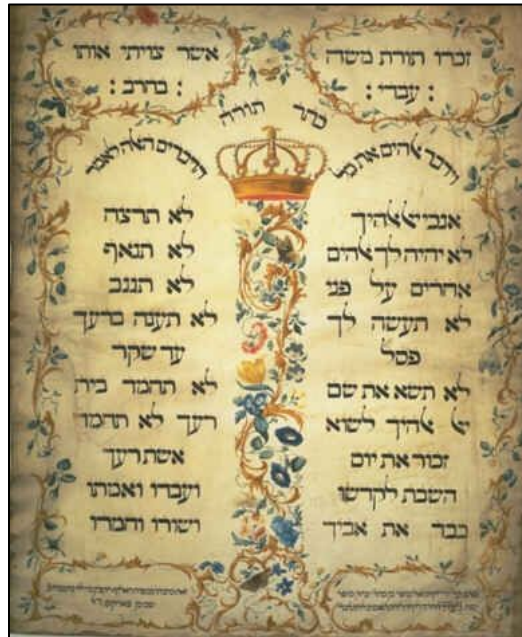 זכרו תורת משה
: עבדי :
אשר צויתי אותו
: בחרב :
כתר תורה
וידבר אלהים את כל
הדברים האלה לאמר
אנכי ייי אלהיך
לא יהיה לך אלהים
אחרים על פני
לא תעשה לך
פסל
לא תשא את שם
ייי אלהיך לשוא
זכור את יום
השבת לקדשו
כבד את אביך
לא תרצח
לא תנאף
לא תגנב
לא תענה ברעך
עד שקר
לא תחמד בית
רעך לא תחמד
אשת רעך
ועבדו ואמתו
ושורו וחמרו